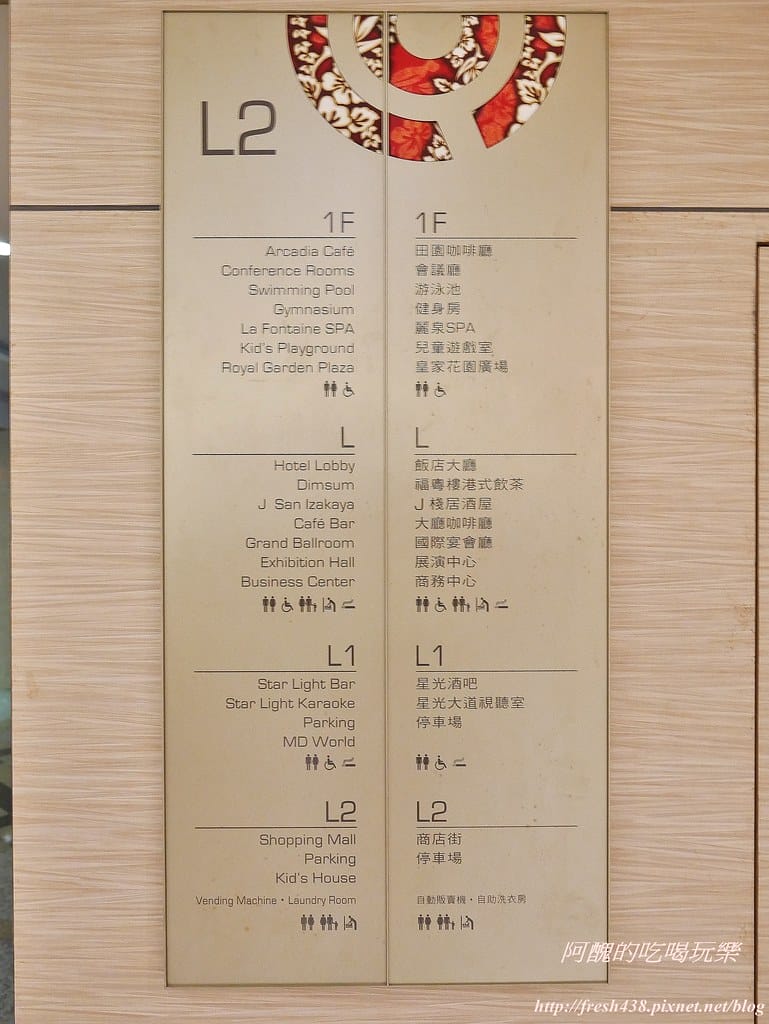 L2
1F
Arcadia Café
Conference Rooms
Swimming Pool
Gymnasium
La Fontaine SPA
Kid's Playground
Royal Garden Plaza
L
Hotel Lobby
Dimsum
J San Izakaya
Café Bar
Grand Ballroom
Exhibition Hall
Business Center
L1
Star Light Bar
Star Light Karaoke
Parking
MD World
L2
Shopping Mall
Parking
Kid's House
Vending Machine・Laundry Room
1F
田園咖啡廳
會議廳
游泳池
健身房
麗泉SPA
兒童遊戲室
皇家花園廣場
L
飯店大廳
福粵樓港式飲茶
J 棧居酒屋
大廳咖啡廳
國際宴會廳
展演中心
商務中心
L1
星光酒吧
星光大道視聽室
停車場
L2
商店街
停車場
自動販賣機・自助洗衣房
阿醜的吃喝玩樂
http://fresh438.pixnet.net/blog